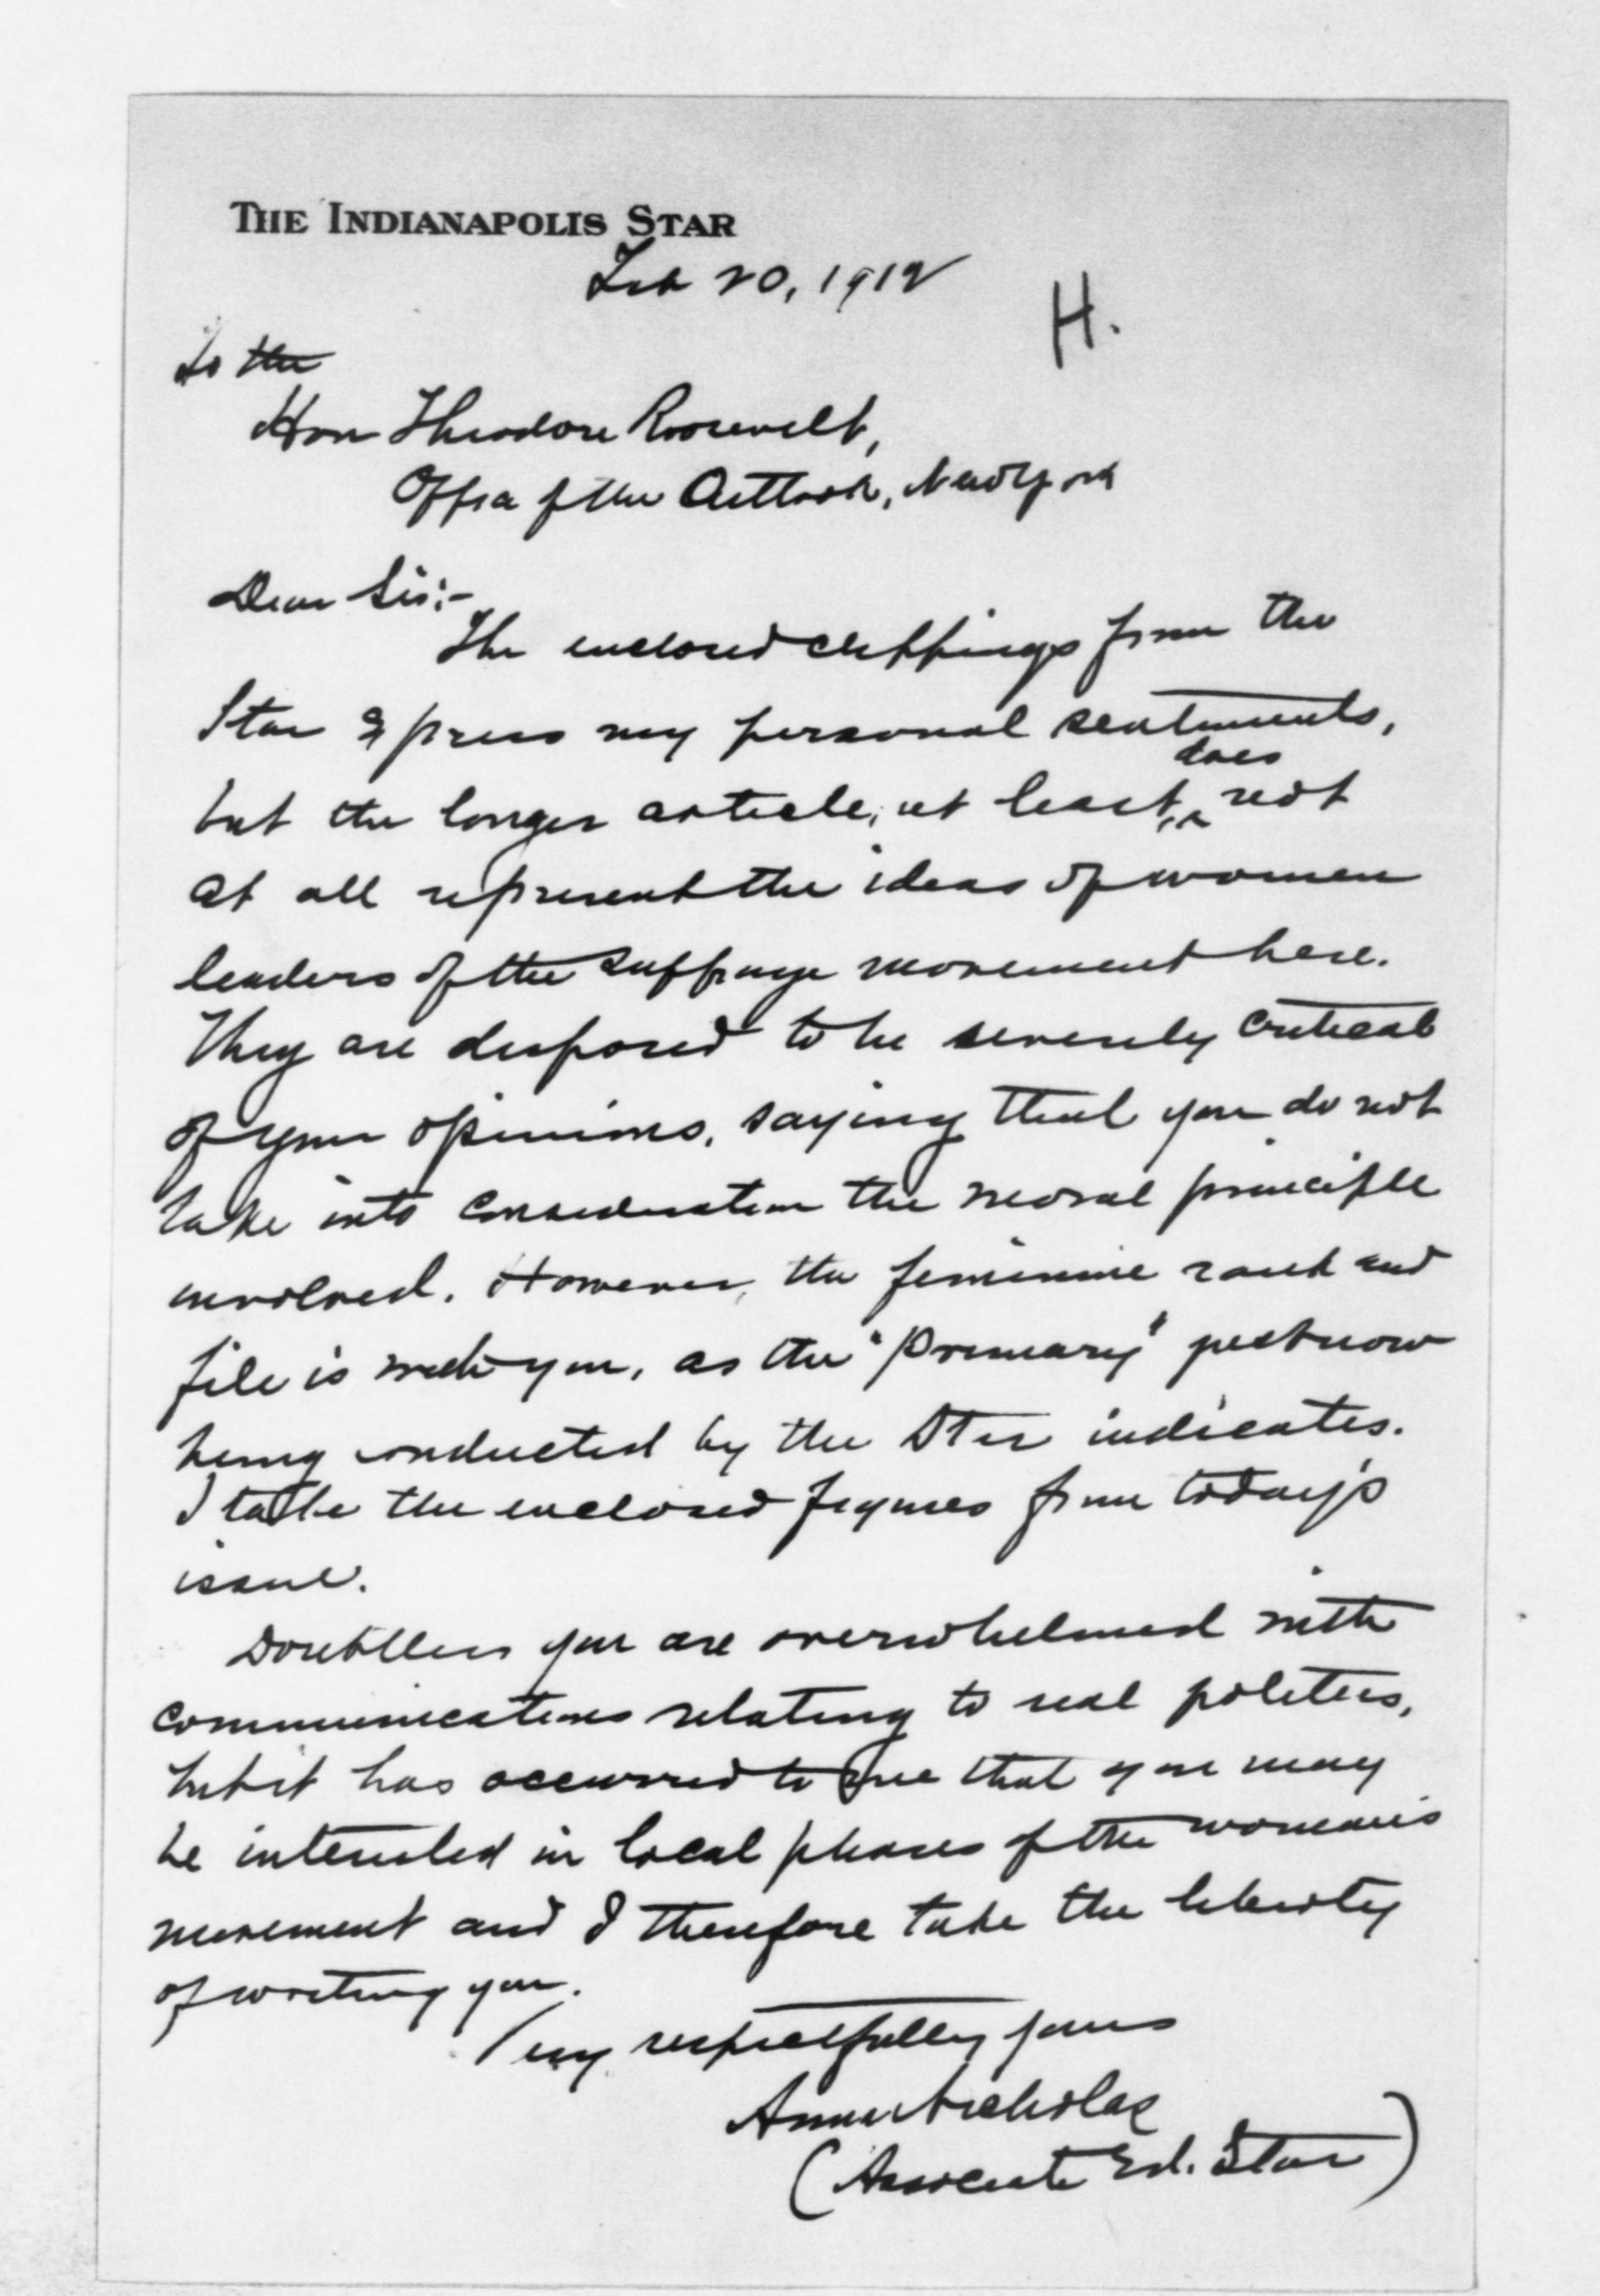 THE INDIANAPOLIS STAR
Feb 20, 1912
H.
To the
Hon Theodore Roosevelt,
Office of the Outlook, New York
Dear Sir:-
The enclosed clippings from the
Star express my personal sentiments,
does
but the longer article, at least, ^ not
at all represent the ideas of women
leaders of the suffrage movement here.
They are disposed to be severely critical
of your opinions, saying that you do not
take into consideration the moral principle
involved. However, the feminine rank and
file is with you, as the "Primary" just now
being conducted by the Star indicates.
I take the enclosed figures from today's
issue.
Doubtless you are overwhelmed with
communications relating to real politics,
but it has occurred to me that you may
be interested in local phases of the woman's
movement and I therefore take the liberty
of writing you.
Very respectfully yours
Anna Nicholas
(Associate Ed. Star)